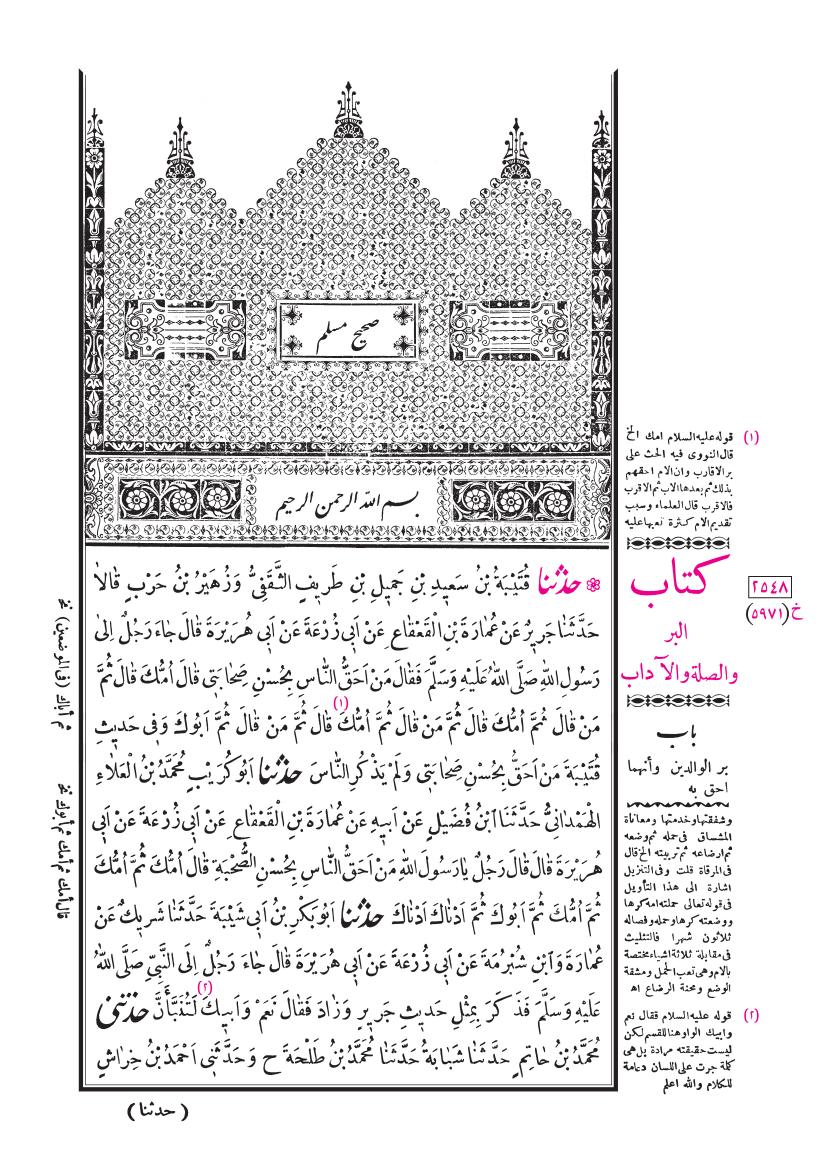 صحيح مسلم
بسم الله الرحمن الرحيم
❀ حَدَّثَنَا قُتَيْبَةُ بْنُ سَعِيدِ بْنِ جَمِيلِ بْنِ طَرِيفٍ الثَّقَفِىُّ وَزُهَيْرُ بْنُ حَرْبٍ قَالَا
حَدَّثَنَا جَرِيرٌ عَنْ عُمَارَةَ بْنِ الْقَعْقَاعِ عَنْ اَبِى زُرْعَةَ عَنْ اَبِى هُرَيْرَةَ قَالَ جَاءَ رَجُلٌ اِلىٰ
رَسُولِ اللهِ صَلَّى اللهُ عَلَيْهِ وَسَلَّمَ فَقَالَ مَنْ اَحَقُّ النَّاسِ بِحُسْنِ صَحَابَتِى قَالَ اُمُّكَ قَالَ ثُمَّ
مَنْ قَالَ ثُمَّ اُمُّكَ قَالَ ثُمَّ مَنْ قَالَ ثُمَّ اُمُّكَ (١) قَالَ ثُمَّ مَنْ قَالَ ثُمَّ اَبُوكَ وَفِى حَدِيثِ
قُتَيْبَةَ مَنْ اَحَقُّ بِحُسْنِ صَحَابَتِى وَلَمْ يَذْكُرِ النَّاسَ حَدَّثَنَا اَبُو كُرَيْبٍ مُحَمَّدُ بْنُ الْعَلَاءِ
الْهَمْدَانِىُّ حَدَّثَنَا ابْنُ فُضَيْلٍ عَنْ اَبِيهِ عَنْ عُمَارَةَ بْنِ الْقَعْقَاعِ عَنْ اَبِى زُرْعَةَ عَنْ اَبِى
هُرَيْرَةَ قَالَ قَالَ رَجُلٌ يَارَسُولَ اللهِ مَنْ اَحَقُّ النَّاسِ بِحُسْنِ الصُّحْبَةِ قَالَ اُمُّكَ ثُمَّ اُمُّكَ
ثُمَّ اُمُّكَ ثُمَّ اَبُوكَ ثُمَّ اَدْنَاكَ اَدْنَاكَ حَدَّثَنَا اَبُو بَكْرِ بْنُ اَبِى شَيْبَةَ حَدَّثَنَا شَرِيكٌ عَنْ
عُمَارَةَ وَابْنِ شُبْرُمَةَ عَنْ اَبِى زُرْعَةَ عَنْ اَبِى هُرَيْرَةَ قَالَ جَاءَ رَجُلٌ اِلَى النَّبِىِّ صَلَّى اللهُ
عَلَيْهِ وَسَلَّمَ فَذَكَرَ بِمِثْلِ حَدِيثِ جَرِيرٍ وَزَادَ فَقَالَ نَعَمْ وَاَبِيكَ (٢) لَتُنَبَّأَنَّ حَدَّثَنِى
مُحَمَّدُ بْنُ حَاتِمٍ حَدَّثَنَا شَبَابَةُ حَدَّثَنَا مُحَمَّدُ بْنُ طَلْحَةَ ح وَحَدَّثَنِى اَحْمَدُ بْنُ خِرَاشٍ
( حدثنا )
(١) قوله عليه السلام امك الخ
قال النووى فيه الحث على
بر الاقارب وان الام احقهم
بذلك ثم بعدها الاب ثم الاقرب
فالاقرب قال العلماء وسبب
تقديم الام كثرة تعبها عليه
كتاب
البر
والصلة والآداب
٢٥٤٨
خ (٥٩٧١)
باب
بر الوالدين وأنهما
احق به
وشفقتها وخدمتها ومعاناة
المشاق فى حمله ثم وضعه
ثم ارضاعه ثم تربيته الخ قال
فى المرقاة قلت وفى التنزيل
اشارة الى هذا التأويل
فى قوله تعالى حملته امه كرها
ووضعته كرها وحمله وفصاله
ثلاثون شهرا فالتثليث
فى مقابلة ثلاثة اشياء مختصة
بالام وهى تعب الحمل ومشقة
الوضع ومحنة الرضاع اه
(٢) قوله عليه السلام فقال نعم
وابيك الواو هنا للقسم لكن
ليست حقيقته مرادة بل هى
كلمة جرت على اللسان دعامة
للكلام والله اعلم
ثم أباك (فى الموضعين) نخ
قال أمك ثم أمك ثم أبوك نخ